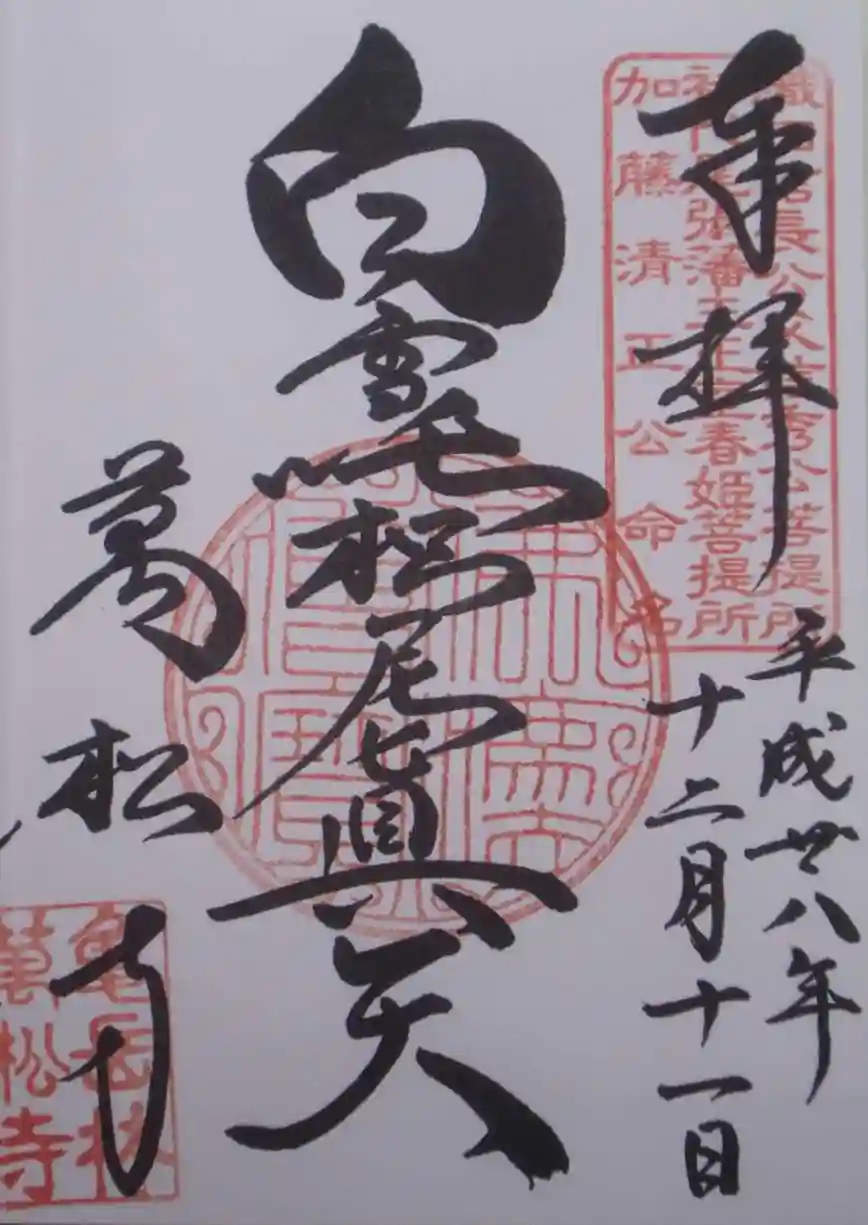 奉拝
織田信長公父信秀公菩提所
初代尾張藩主正室春姫菩提所
加藤清正公命名
平成廿八年
十二月十一日
白雪吒枳尼眞天
萬松寺
龜岳林
萬松寺